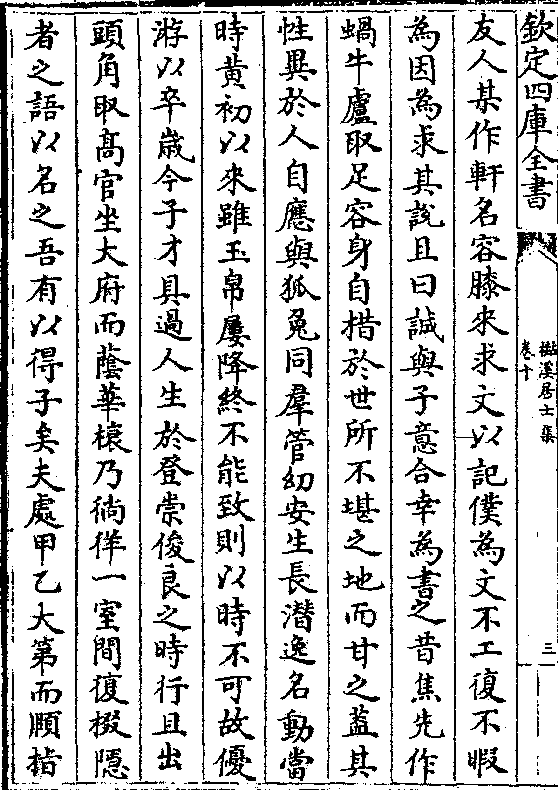 欽定四庫全書
卷十
三
友人某作軒名容膝來求文以記僕為文不工復不暇
為因為求其說且曰誠與子意合幸為書之昔焦先作
蝸牛廬取足容身自措於世所不堪之地而甘之蓋其
性異於人自應與狐兔同羣管幼安生長潛逸名動當
時黃初以來雖玉帛屢降終不能致則以時不可故優
游以卒歲今子才具過人生於登崇俊良之時行且出
頭角取髙官坐大府而蔭華榱乃徜徉一室間復掇隱
者之語以名之吾有以得子矣夫處甲乙大第而顧指